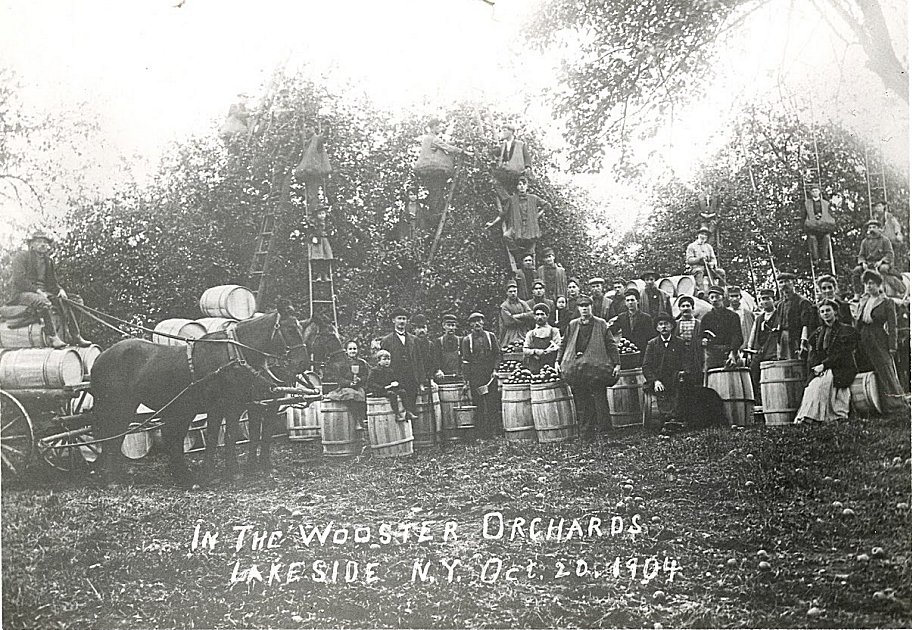 IN THE WOOSTER ORCHARDS
LAKESIDE N.Y. Oct. 20. 1904